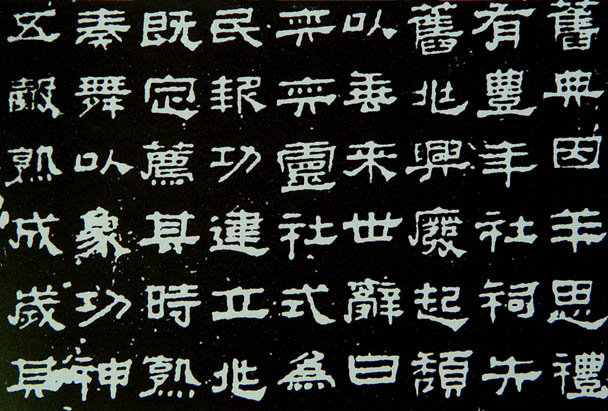 舊典因羊思禮
有豐年社祠先
舊兆興廢起頹
以垂来世辭曰
亦亦靈社式為
民報功建立兆
既定薦其時熟
奏舞以象功神
五穀熟成歲其